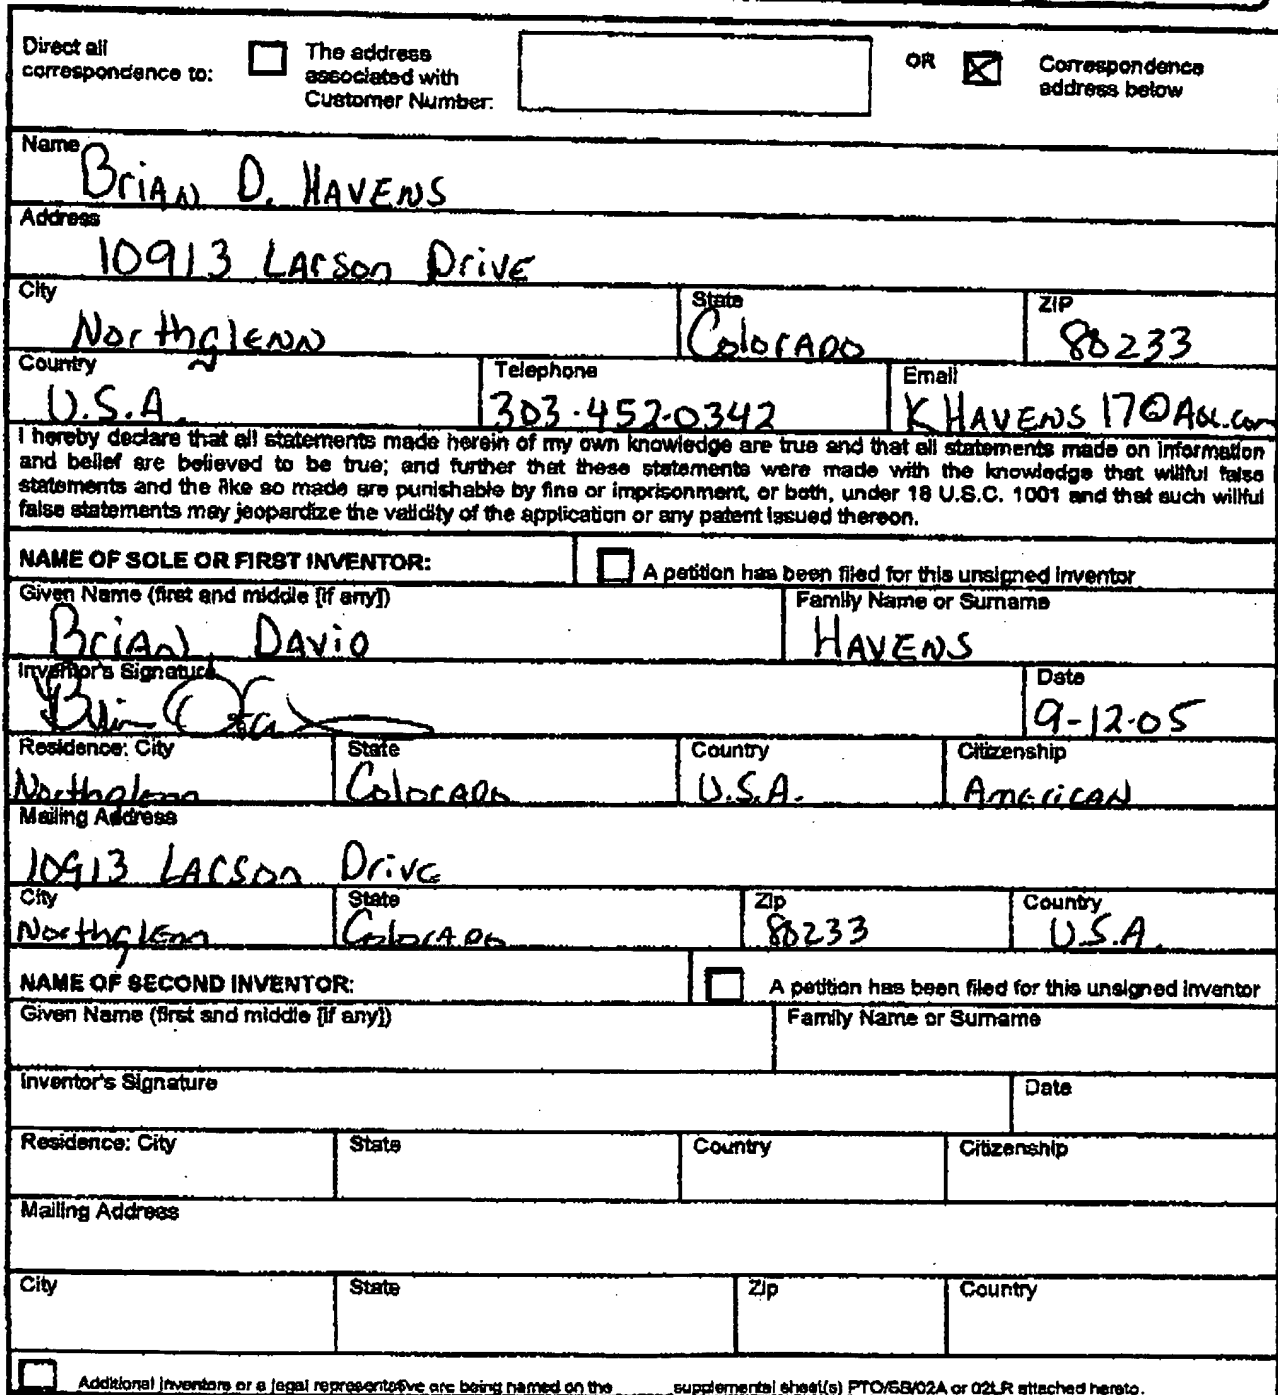 Direct all correspondence to:
The address associated with Customer Number:
OR
Correspondence address below
Name
Brian D. Havens
Address
10913 Larson Drive
City State ZIP
Northglenn Colorado 80233
Country Telephone Email
U.S.A. 303-452-0342 KHAVENS17@AOL.com
I hereby declare that all statements made herein of my own knowledge are true and that all statements made on information
and belief are believed to be true; and further that these statements were made with the knowledge that willful false
statements and the like so made are punishable by fine or imprisonment, or both, under 18 U.S.C. 1001 and that such willful
false statements may jeopardize the validity of the application or any patent issued thereon.
NAME OF SOLE OR FIRST INVENTOR: A petition has been filed for this unsigned inventor
Given Name (first and middle [if any]) Family Name or Surname
Brian David HAVENS
Inventor's Signature Date
9-12-05
Residence: City State Country Citizenship
Northglenn Colorado U.S.A. American
Mailing Address
10913 Larson Drive
City State Zip Country
Northglenn Colorado 80233 U.S.A.
NAME OF SECOND INVENTOR: A petition has been filed for this unsigned inventor
Given Name (first and middle [if any]) Family Name or Surname
Inventor's Signature Date
Residence: City State Country Citizenship
Mailing Address
City State Zip Country
Additional inventors or a legal representative are being named on the ____ supplemental sheet(s) PTO/SB/02A or 02LR attached hereto.